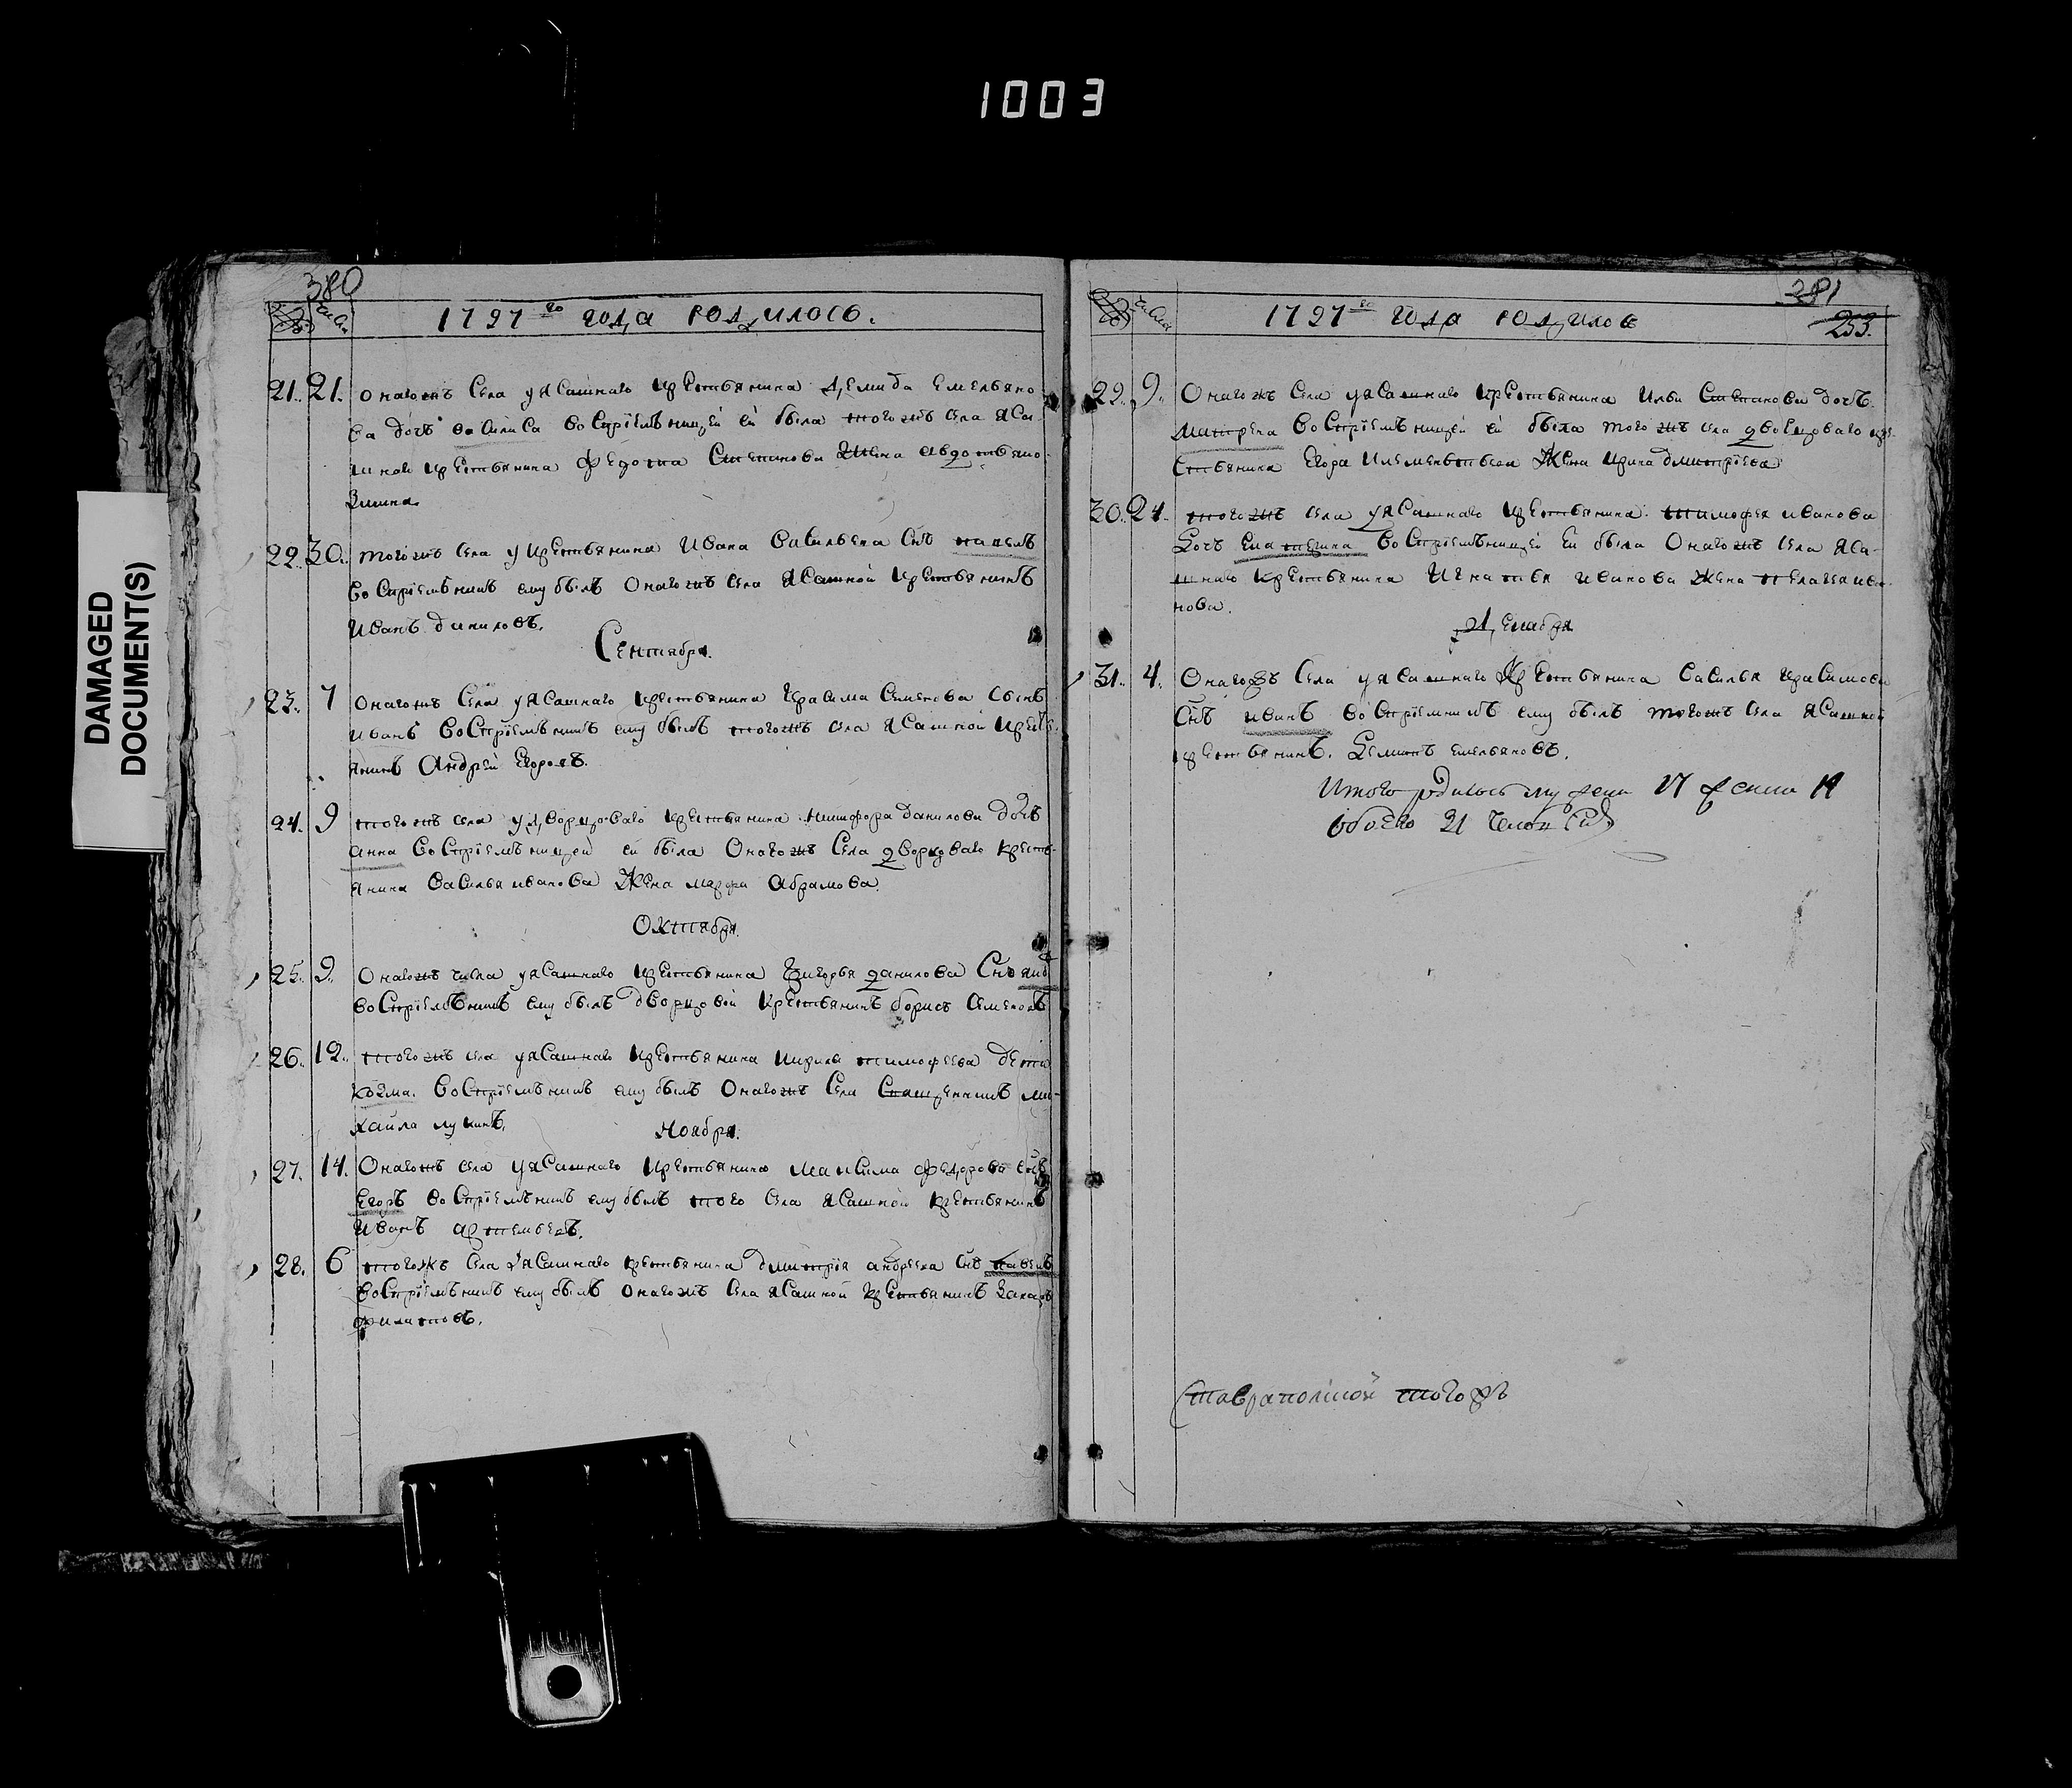 1003
DAMAGED
DOCUMENT(S)
380
Числа
1797го года родилось.
21. 21. Онагожъ села у ясашнаго крестьянина Демида Емельяно-
ва дочь Василиса воспрiемницей ей была тогожъ села яса-
шнаго крестьянина Федота Степанова жена Авдотья
22. 30. тогожъ села у крестьянина Ивана Васильева снъ Павелъ
воспрiемникъ ему былъ онагожъ села ясашной крестьянинъ
Иванъ Даниловъ.
Сентября.
23. 7 Онагожъ села у ясашнаго крестьянина Герасима Семенова сынъ
Иванъ воспрiемникъ ему былъ тогожъ села ясашной крестъ-
янинъ Андрей Егоровъ.
24. 9 тогожъ села у дворцоваго крестьянина Никифора Данилова дочь
Анна воспрiемницей ей была Онагожъ села дворцоваго кресть-
янина Василья Иванова жена Марфа Абрамова.
Октября.
25. 9. Онагожъ числа у ясашнаго крестьянина Григорья Данилова снъ
воспрiемникъ ему былъ дворцовой крестьянинъ Борисъ Семеновъ
26. 12. тогожъ села у ясашнаго крестьянина Кирилы Тимофеева
Козма. воспрiемникъ ему былъ Онагожъ села Священникъ Ми-
хайла Лукинъ.
Ноября.
27. 14. Онагожъ села у ясашнаго крестьянина Максима Федорова снъ
Егоръ воспрiемникъ ему былъ того села ясашной крестьянинъ
Иванъ Артемьевъ.
28. 6 тогожъ села у ясашнаго крестьянина Дмитрiя Андреева снъ Павелъ
воспрiемникъ ему былъ онагожъ села ясашной крестьянинъ Захаръ
Филиповъ.
281
253.
Числа
1797го года родилось
29. 9. Онагожъ села у ясашнаго крестьянина Ильи Степанова дочь.
Матрена воспрiемницей ей была тогожъ села дворцоваго кре-
стьянина Егора Клементьева жена Ирина Дмитрiева
30. 24. тогожъ села у ясашнаго крестьянина Тимофея Иванова
дочь Екатерина воспрiемницей ей была Онагожъ села яса-
шнаго крестьянина Игнатья Иванова жена Пелагея Ива-
нова.
Декабря
31. 4. Онагожъ села у ясашнаго крестьянина Василья Герасимова
снъ Иванъ воспрiемникъ ему былъ тогожъ села ясашной
крестьянинъ. Демидъ Емельяновъ.
Итого родилось мужеска 17 женска 14
обоего 31 человекъ
Ставрапольской тогожъ